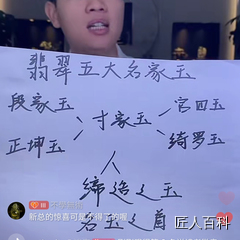 翡翠五大名家玉
段家玉 寸家玉 官四玉
正坤玉 绮罗玉
人
缔造之玉
名玉之首
新总的惊喜可是不得了的喔
匠人百科